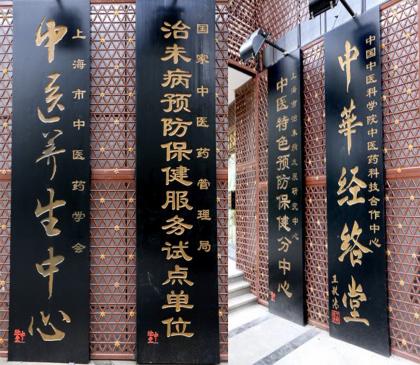 上海市中医药学会
中医养生中心
国家中医药管理局
治未病预防保健服务试点单位
上海市治未病之医研究中心
中医特色预防保健分中心
中国中医科学院中医药科技合作中心
中華经络堂